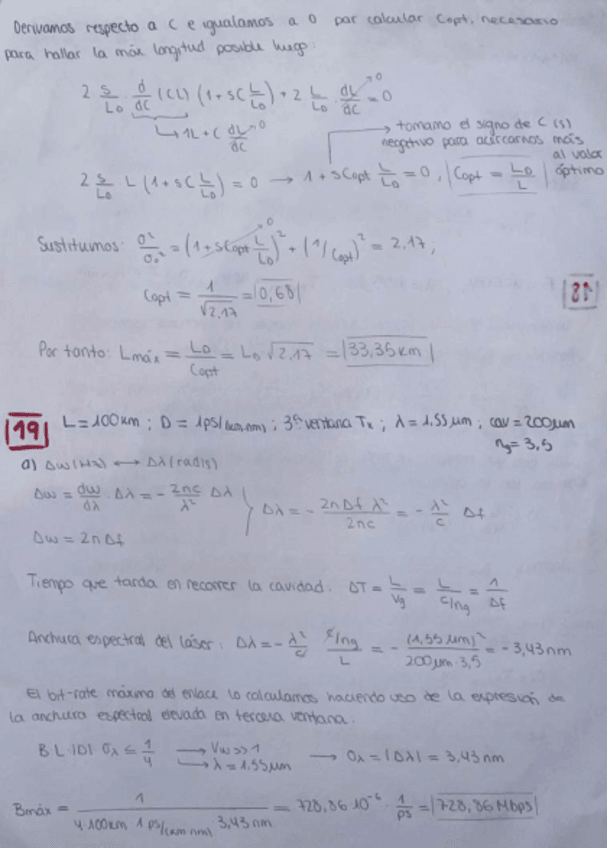 Derivamos respecto a C e igualamos a 0 par calcular Copt, necesario
para hallar la máx longitud posible luego:
2 S/L_D · d/dC (CL) (1+sC L/L_D) + 2 L/L_D · dL/dC = 0
→ 1L + C dL/dC → 0
→ tomamo el signo de C (s)
negativo para acercarnos más
al valor
óptimo
2 S/L_D L (1+sC L/L_D) = 0 → 1+sCopt L/L_D = 0, |Copt = L_D/L|
Sustituimos: σ²/σ₀² = (1+sCopt L/L_D)² + (1/Copt)² = 2,17;
Copt = 1/√2,17 = |0,68|
18
Por tanto: Lmáx = L_D/Copt = L_D √2,17 = |33,35 km|
19 L=100km ; D = 1ps/(km·nm) ; 3ª ventana Tx ; λ = 1,55 μm ; cav = 200μm
ng = 3,5
a) Δw(Hz) ↔ Δλ(rad/s)
Δw = dw/dλ · Δλ = - 2πc/λ² Δλ
Δw = 2πΔf
Δλ = - 2πΔf λ²/2πc = - λ²/c Δf
Tiempo que tarda en recorrer la cavidad: ΔT = L/Vg = L/(c/ng) = 1/Δf
Anchura espectral del láser: Δλ = - λ²/c · (c/ng)/L = - (1,55 μm)²/(200μm·3,5) = -3,43nm
El bit-rate máximo del enlace lo calculamos haciendo uso de la expresión de
la anchura espectral elevada en tercera ventana:
B L |D| σλ ≤ 1/4 → Vw>>1 → σλ = |Δλ| = 3,43 nm
→ λ = 1.55μm
Bmáx = 1/(4·100km 1 ps/(km nm) 3,43 nm) = 728,86 10⁻⁶ · 1/ps = |728,86 Mbps|